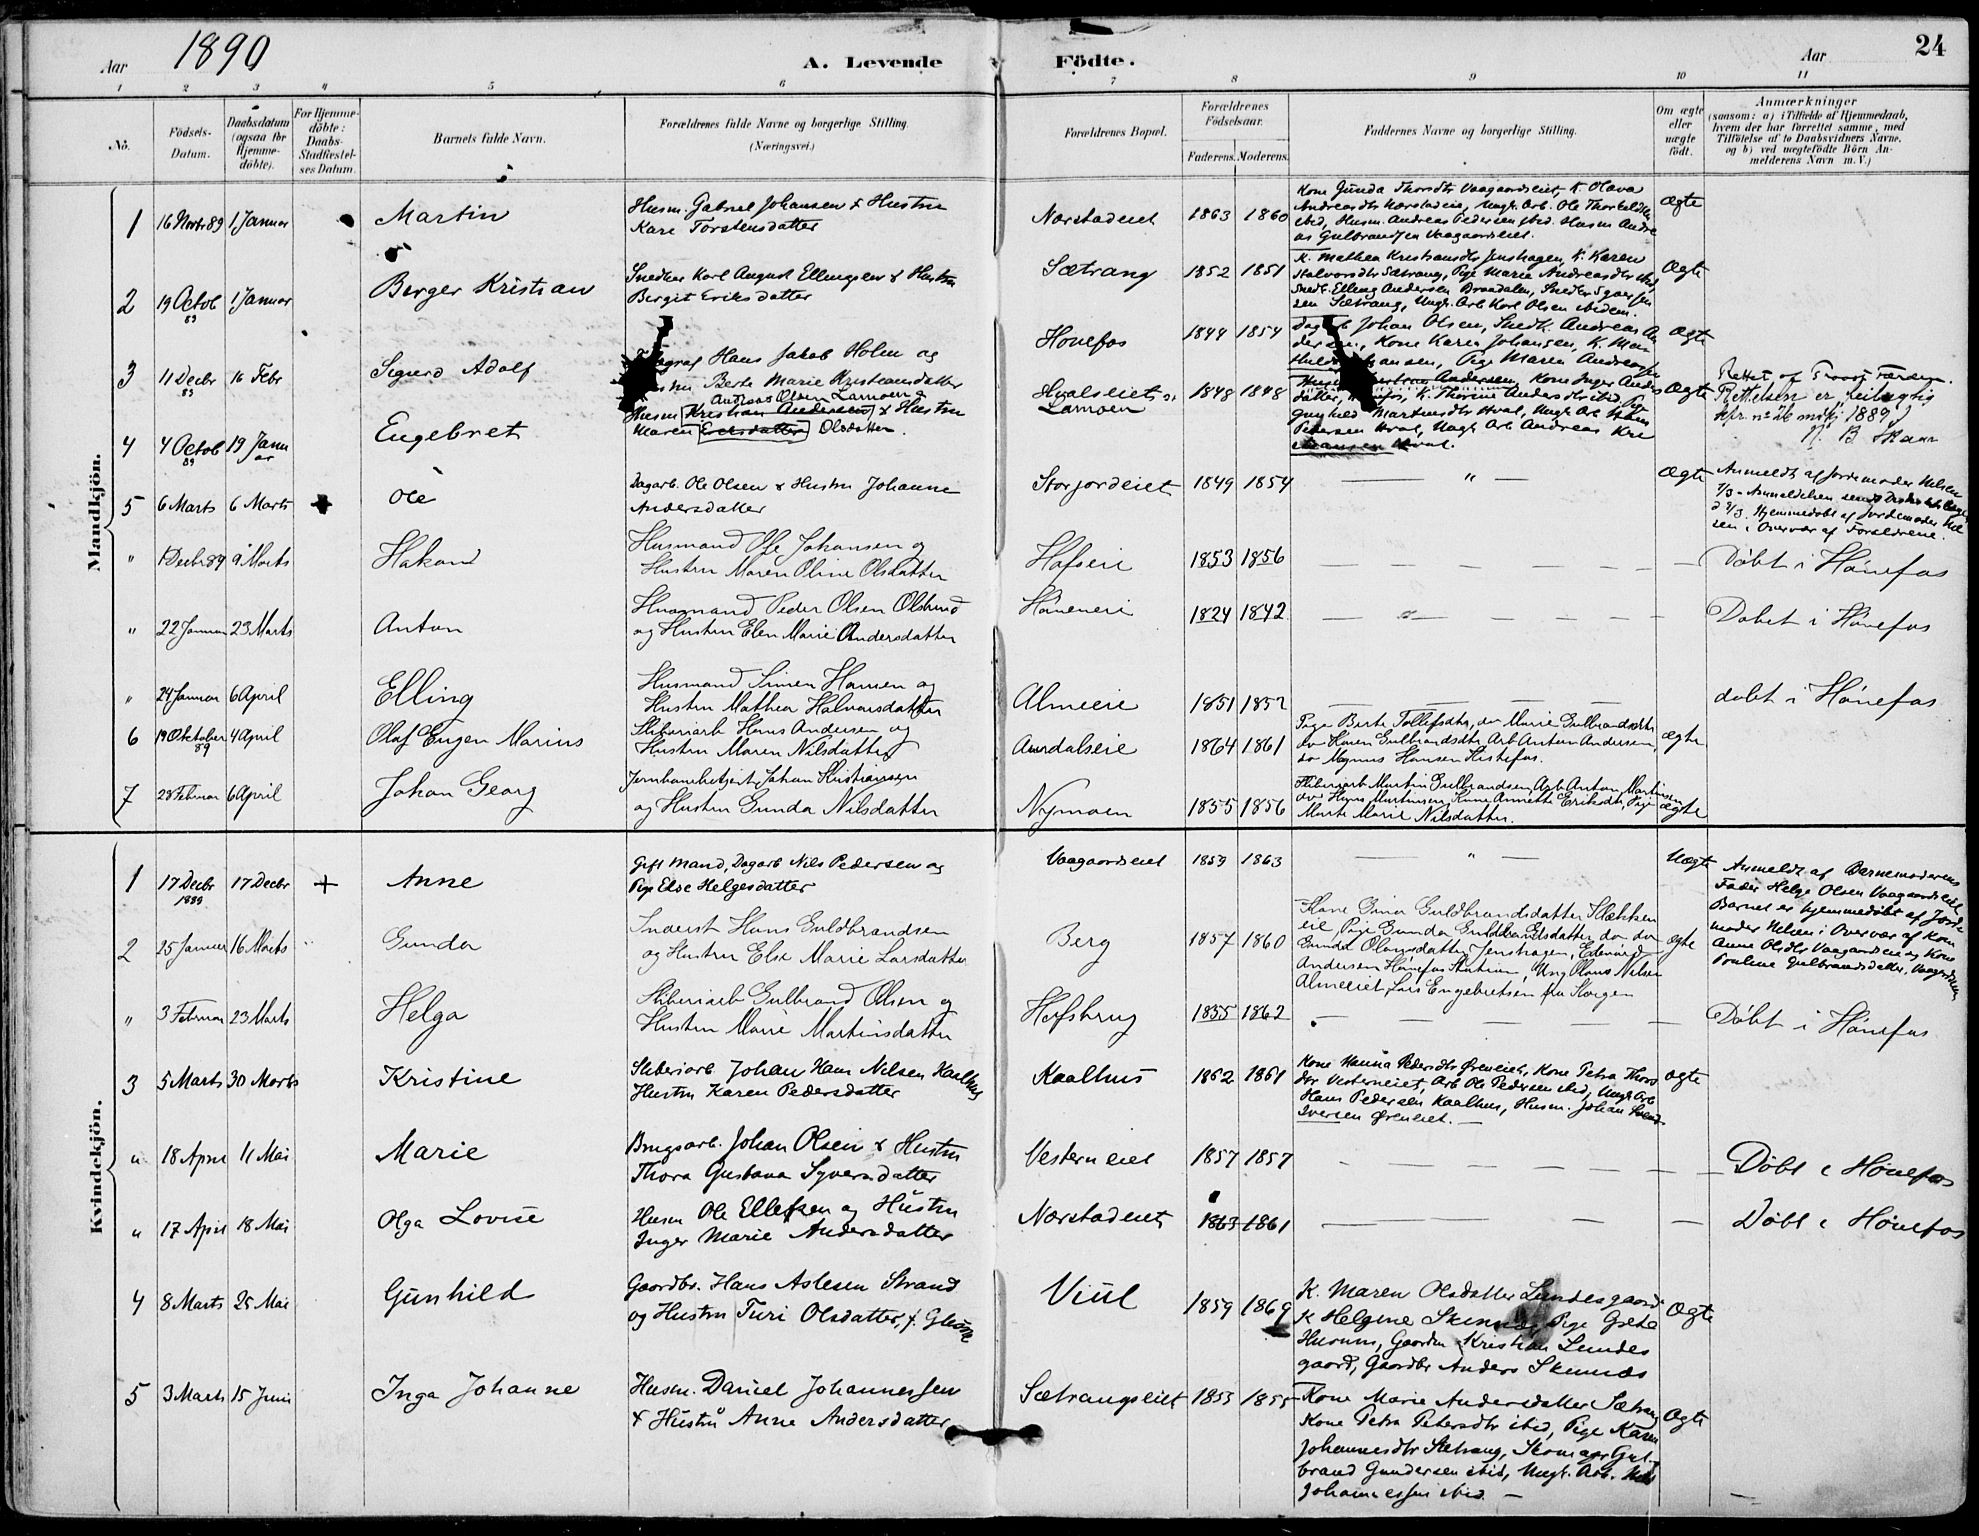 1890
24
Aar
A. Levende
Födte.
Aar
1 2 3 4 5 6 7 8 9 10 11
No.
Födsels-
Datum.
Daabsdatum
(ogsaa for
Hjemme-
döbte).
For Hjemme-
döbte:
Daabs-
Stadfæstel-
ses Datum.
Barnets fulde Navn.
Forældrenes fulde Navne og borgerlige Stilling.
(Næringsvei.)
Forældrenes Bopæl.
Forældrenes
Födselsaar.
Faderens. Moderens.
Faddernes Navne og borgerlige Stilling.
Om ægte
eller
uægte
født.
Anmærkninger
(saasom: a) i Tilfælde af Hjemmedaab,
hvem der har forrettet samme, med
Tilföielse af to Daabsvidners Navne,
og b) ved uægtefödte Börn An-
melderens Navn m. V.)
Mandkjön.
1 16 Novbr 89 1 Januar Martin
Husm. Gabriel Johansen & Hustru
Kari Torstensdatter
Nærstadeiet 1863 1860
Kone Gunda Thorsdtr Vaagaardseiet, K. Olava
Andreasdtr Nærstadeie, Ungk. Arb. Ole Thorkeldsen
ibid, Husm. Andreas Pedersen ibid. Husm Andre
as Gulbrandsen Vaagaardseiet.
Ægte
2 19 Octob 1 Januar Berger Kristian
89
Snedker Karl August Ellingsen & Hustru
Bergit Eriksdatter
Sætrang 1852 1851
K. Mathea Kristiansdtr Jenshagen, K. Karen
Halvorsdtr Sætrang, Pige Marie Andreasdtr ibid,
Snedk. Elling Andersen Braadalen, Snedker
sen Sætrang, Ungk. Arb Karl Olsen ibidem.
Ægte
3 11 Decbr 16 Febr Sigurd Adolf
89
Hans Jakob Holm og
Berte Marie Kristiansdatter
Hønefos 1849 1854
Johan Olsen, Snedk. Andreas An
dersen, Kone Karen Johansen, K.
Pige Maren Andreasen
Ægte
4 4 Octob 19 Janu Engebret
89 ar
Andreas Olsen Lamoen
Husm Kristian Andersen & Hustru
Maren Eriksdatter Olsdatter.
Hvalseiet
Lamoen
1848 1848
Andersen, Kone Inger Anders
datter, K. Thorine Andersdtr ibid, Pige
Gunhild Martinsdtr Hval, Ungk Arb
Pedersen Hval, Ungk Arb Andreas Kri
stiansen Hval.
Ægte
Rettet af Provst Færden.
Rettelsen er feilagtig
kfr. no 26 mdkj. 1889)
N. B. Skaar
5 6 Marts 6 Marts + Ole
Dagarb. Ole Olsen & Hustru Johanne
Andersdatter
Storjordeiet 1849 1854 — " — Ægte
Anmeldt af Jordemoder Nelsen
7/3 - Anmeldelsen
d 9/3. Hjemmedøbt af Jordemoder Nel
sen i Overvær af Forældrene.
" 1 Decbr 89 9 Marts Hakon
Husmand Ole Johansen og
Hustru Maren Oline Olsdatter
Hofseie 1853 1856 — — Døbt i Hønefos
" 22 Januar 23 Marts Anton
Husmand Peder Olsen
og Hustru Elen Marie Andersdatter
Høneneie 1824 1842 — — Døbt i Hønefos
" 24 Januar 6 April Elling
Husmand Simen Hansen og
Hustru Mathea Halvorsdatter
Almeeie 1851 1852 — — døbt i Hønefos
6 19 Oktober 4 April Olaf Eugen Marius
89
Sliberiarb Hans Andersen og
Hustru Maren Nilsdatter
Aurdalseie 1864 1861
Pige Berte Tollefsdtr, do Marie Gulbrandsdtr
do Karen Gulbrandsdtr Arb Anton Andersen,
do Magnus Hansen Histefos.
ægte
7 28 Februar 6 April Johan Georg
Jernbanebetjent Johan Kristiansen
og Hustru Gunda Nilsdatter
Nymoen 1855 1856
Sliberiarb Martin Gulbrandsen, Arb Anton Martinsen
do Hans Martinsen, Kone Annette Eriksdtr, Pige
Marte Marie Nilsdatter.
ægte
Kvindekjön.
1 17 Decbr 17 Decbr + Anne
1889
Gift Mand, Dagarb Nils Pedersen og
Pige Else Helgesdatter
Vaagaardseiet 1859 1863 — " — Uægte
Anmeldt af Barnemoderens
Fader Helge Olsen Vaagaardseiet
Barnet er hjemmedøbt af Jorde
moder Nelsen i Overvær af Kone
Anne Olsdtr Vaagaardseie og Kone
Pauline Gulbrandsdatter, Vaagardseie
2 25 Januar 16 Marts " Gunda
Inderst Hans Guldbrandsen
og Hustru Else Marie Larsdatter
Berg 1857 1860
Kone Gina Guldbrandsdatter Klækken
eie Pige Gunda Guldbrandsdatter do do
Gunda Olausdatter Jenshagen, Edvard
Andersen Hønefos Station, Ung Olaus Nilsen
Almeeiet, Lars Engebretsen fra Skogen
ægte
" 3 Februar 23 Marts Helga
Sliberiarb Gulbrand Olsen og
Hustru Marie Martinsdatter
Hofsbrug 1855 1862 — — Døbt i Hønefos
3 5 Marts 30 Marts Kristine
Sliberiarb Johan Hans Nilsen Kaalhus
Hustru Karen Pedersdatter
Kaalhus 1862 1861
Kone Hanna Pedersdtr Øreneiet, Kone Petra Thors
dtr Vesterneiet, Arb Ole Pedersen ibid, Ungk Arb
Hans Pedersen Kaalhus, Husm. Johan
Iversen Øreneiet. —
ægte
" 18 April 11 Mai Marie
Brugsarb. Johan Olsen & Hustru
Thora Gustava Syversdatter
Vesterneiet 1857 1857 — — Døbt i Hønefos
" 17 April 18 Mai Olga Lovise
Husm Ole Ellefsen og Hustru
Inger Marie Andersdatter
Nærstadeiet 1863 1861 — — Døbt i Hønefos
4 8 Marts 25 Mai Gunhild
Gaardbr. Hans Aslesen Strand
og Hustru Turi Olsdatter, f.
Viul 1859 1869
K. Maren Olsdatter Lundesgaard
K Helgine Skinnæs, Pige Grete
Husum, Gaardm Kristian Lundes
gaard, Gaardbr Anders Skinnæs
Ægte
5 3 Marts 15 Juni Inga Johanne
Husm. Daniel Johannessen
& Hustru Anne Andersdatter
Sætrangseiet 1853 1855
Kone Marie Andersdatter Sætrang
Kone Petra Petersdtr ibid, Pige Karen
Johannesdtr Sætrang, Skomager Gul
brand Gundersen ibid, Ungk. Arb. Nils
Johannessen ibid. —
Ægte